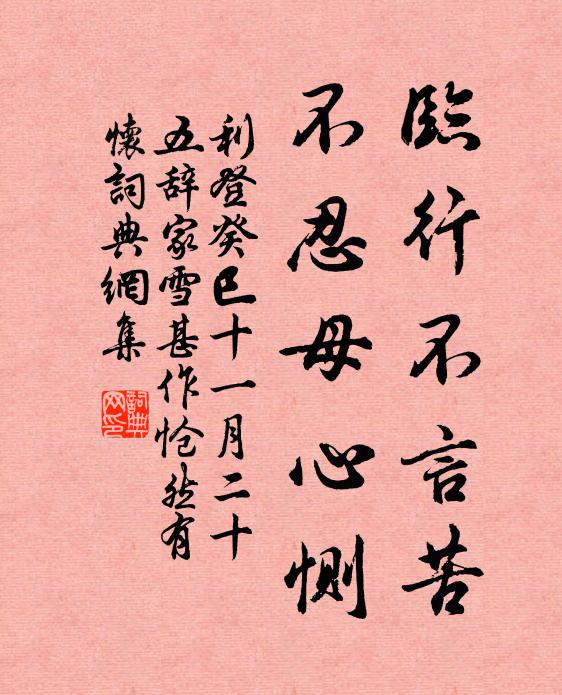 臨行不言苦
不忍母心惻
利登癸巳十一月二十
五辞家雪甚作怆然有
懷詞典網集
詞典网印